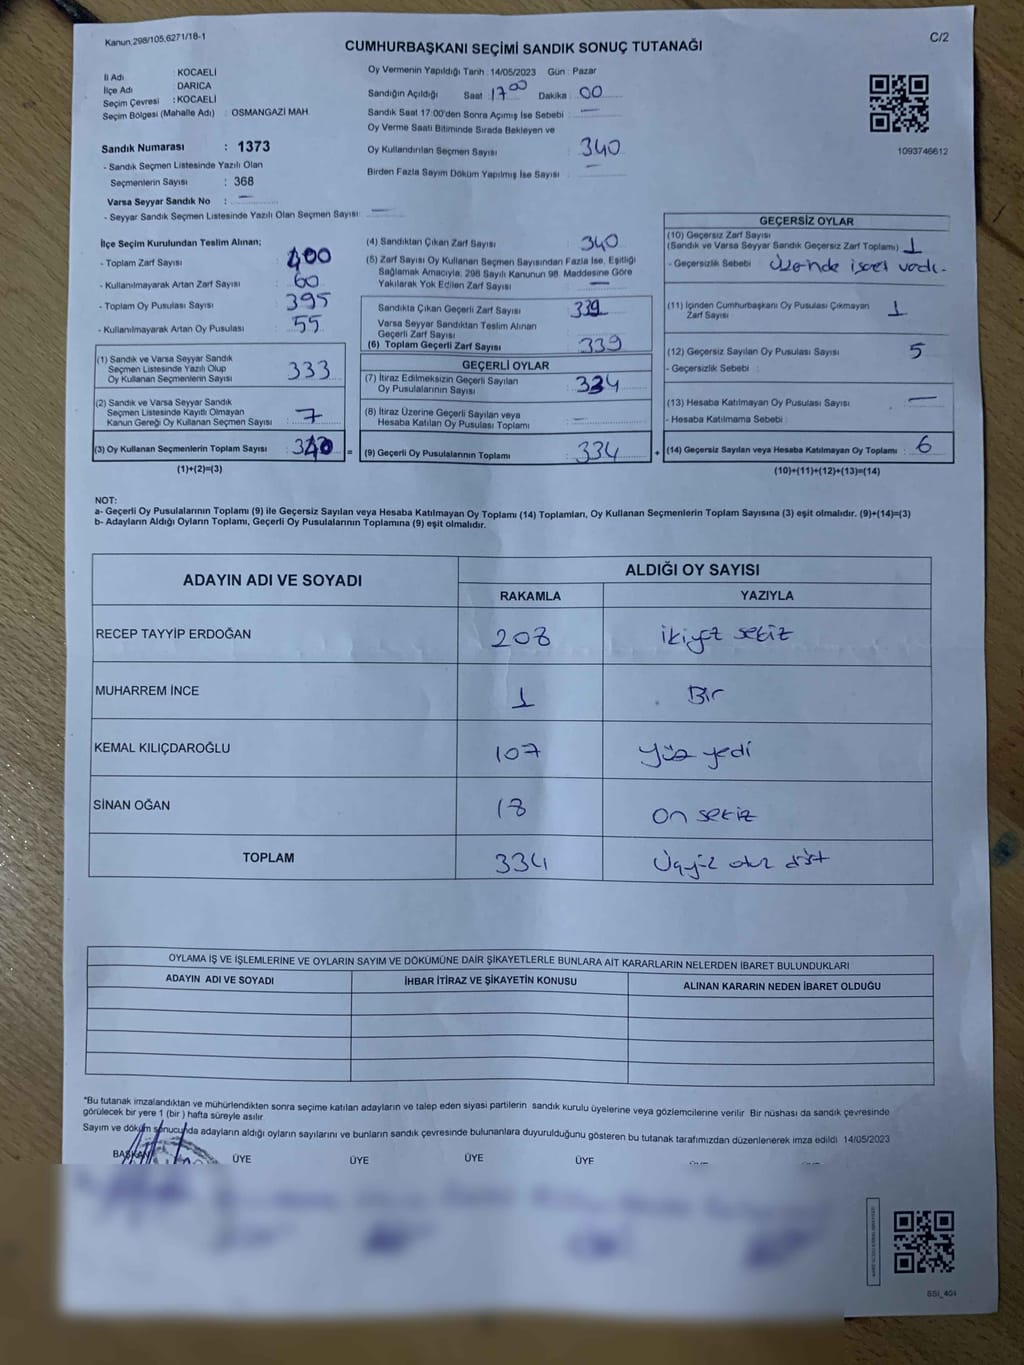 Kanun.298/105,6271/18-1
C/2
CUMHURBAŞKANI SEÇİMİ SANDIK SONUÇ TUTANAĞI
İl Adı : KOCAELİ
İlçe Adı DARICA
Seçim Çevresi : KOCAELİ
Seçim Bölgesi (Mahalle Adı) : OSMANGAZİ MAH.
Sandık Numarası : 1373
- Sandık Seçmen Listesinde Yazılı Olan
Seçmenlerin Sayısı : 368
Varsa Seyyar Sandık No : —
- Seyyar Sandık Seçmen Listesinde Yazılı Olan Seçmen Sayısı: —
Oy Vermenin Yapıldığı Tarih : 14/05/2023 Gün : Pazar
Sandığın Açıldığı Saat 17 00 Dakika 00
Sandık Saat 17:00'den Sonra Açımış İse Sebebi —
Oy Verme Saati Bitiminde Sırada Bekleyen ve
Oy Kullandırılan Seçmen Sayısı 340
Birden Fazla Sayım Döküm Yapılmış İse Sayısı : —
1093746612
İlçe Seçim Kurulundan Teslim Alınan;
- Toplam Zarf Sayısı : 400
- Kullanılmayarak Artan Zarf Sayısı : 60
- Toplam Oy Pusulası Sayısı : 395
- Kullanılmayarak Artan Oy Pusulası : 55
(1) Sandık ve Varsa Seyyar Sandık
Seçmen Listesinde Yazılı Olup
Oy Kullanan Seçmenlerin Sayısı : 333
(2) Sandık ve Varsa Seyyar Sandık
Seçmen Listesinde Kayıtlı Olmayan
Kanun Gereği Oy Kullanan Seçmen Sayısı : 7
(3) Oy Kullanan Seçmenlerin Toplam Sayısı : 340 =
(1)+(2)=(3)
(4) Sandıktan Çıkan Zarf Sayısı : 340
(5) Zarf Sayısı Oy Kullanan Seçmen Sayısından Fazla İse, Eşitliği
Sağlamak Amacıyla, 298 Sayılı Kanunun 98. Maddesine Göre
Yakılarak Yok Edilen Zarf Sayısı : —
Sandıkta Çıkan Geçerli Zarf Sayısı : 339
Varsa Seyyar Sandıktan Teslim Alınan
Geçerli Zarf Sayısı :
(6) Toplam Geçerli Zarf Sayısı : 339
GEÇERLİ OYLAR
(7) İtiraz Edilmeksizin Geçerli Sayılan
Oy Pusulalarının Sayısı : 334
(8) İtiraz Üzerine Geçerli Sayılan veya
Hesaba Katılan Oy Pusulası Toplamı : —
(9) Geçerli Oy Pusulalarının Toplamı : 334 +
GEÇERSİZ OYLAR
(10) Geçersiz Zarf Sayısı
(Sandık ve Varsa Seyyar Sandık Geçersiz Zarf Toplamı) : 1
- Geçersizlik Sebebi : Üzerinde işaret vardı.
(11) İçinden Cumhurbaşkanı Oy Pusulası Çıkmayan
Zarf Sayısı : 1
(12) Geçersiz Sayılan Oy Pusulası Sayısı : 5
- Geçersizlik Sebebi :
(13) Hesaba Katılmayan Oy Pusulası Sayısı : —
- Hesaba Katılmama Sebebi :
(14) Geçersiz Sayılan veya Hesaba Katılmayan Oy Toplamı : 6
(10)+(11)+(12)+(13)=(14)
NOT:
a- Geçerli Oy Pusulalarının Toplamı (9) ile Geçersiz Sayılan veya Hesaba Katılmayan Oy Toplamı (14) Toplamları, Oy Kullanan Seçmenlerin Toplam Sayısına (3) eşit olmalıdır. (9)+(14)=(3)
b- Adayların Aldığı Oyların Toplamı, Geçerli Oy Pusulalarının Toplamına (9) eşit olmalıdır.
ADAYIN ADI VE SOYADI ALDIĞI OY SAYISI
RAKAMLA YAZIYLA
RECEP TAYYİP ERDOĞAN 208 ikiyüz sekiz
MUHARREM İNCE 1 Bir
KEMAL KILIÇDAROĞLU 107 yüz yedi
SİNAN OĞAN 18 on sekiz
TOPLAM 334 Üçyüz otuz dört
OYLAMA İŞ VE İŞLEMLERİNE VE OYLARIN SAYIM VE DÖKÜMÜNE DAİR ŞİKAYETLERLE BUNLARA AİT KARARLARIN NELERDEN İBARET BULUNDUKLARI
ADAYIN ADI VE SOYADI İHBAR İTİRAZ VE ŞİKAYETİN KONUSU ALINAN KARARIN NEDEN İBARET OLDUĞU
*Bu tutanak imzalandıktan ve mühürlendikten sonra seçime katılan adayların ve talep eden siyasi partilerin sandık kurulu üyelerine veya gözlemcilerine verilir Bir nüshası da sandık çevresinde
görülecek bir yere 1 (bir ) hafta süreyle asılır.
Sayım ve döküm sonucunda adayların aldığı oyların sayılarını ve bunların sandık çevresinde bulunanlara duyurulduğunu gösteren bu tutanak tarafımızdan düzenlenerek imza edildi 14/05/2023
BAŞKAN ÜYE ÜYE ÜYE ÜYE
SSİ_401